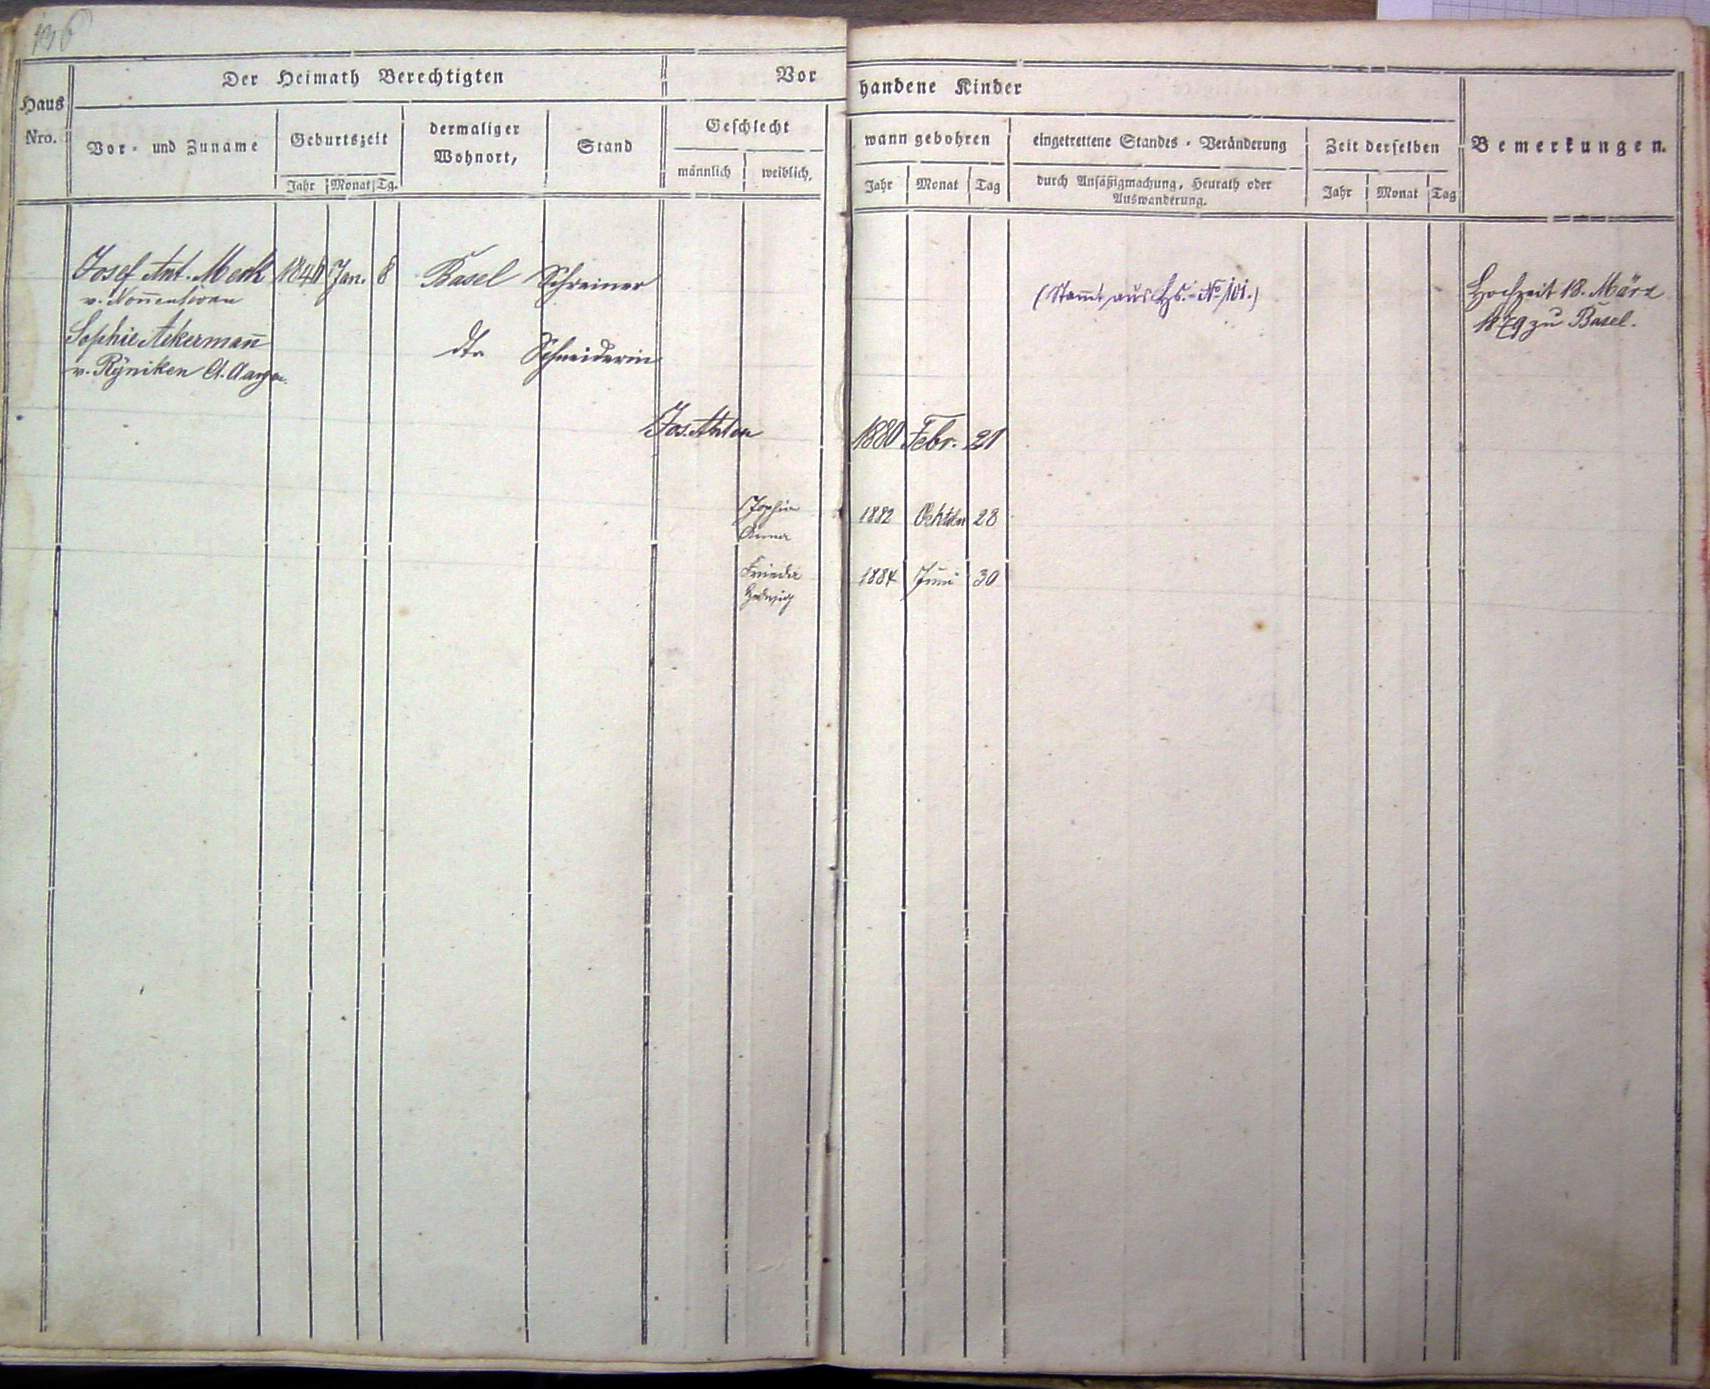 136
Der Heimath Berechtigten
Vor
handene Kinder
Haus
Nro.
Vor- und Zuname
Geburtszeit
dermaliger
Wohnort,
Stand
Geschlecht
wann gebohren
eingetrettene Standes-Veränderung
Zeit derselben
Bemerkungen.
Jahr Monat Tg.
männlich weiblich.
Jahr Monat Tag
durch Ansäßigmachung, Heurath oder
Auswanderung.
Jahr Monat Tag
Josef Ant. Merk Jan. 8 Basel Schreiner
(Stam̄t aus Hs.-No. 101.)
Hochzeit 18. März
1879 zu Basel.
Sophie Ackerman̄
dto Schneiderin
v. Ryniken Ct. Aargau.
Jos. Anton 1880 Febr. 21
Sophie 1882 Oktober 28
Anna
Frieda 1884 Juni 30
Hedwig